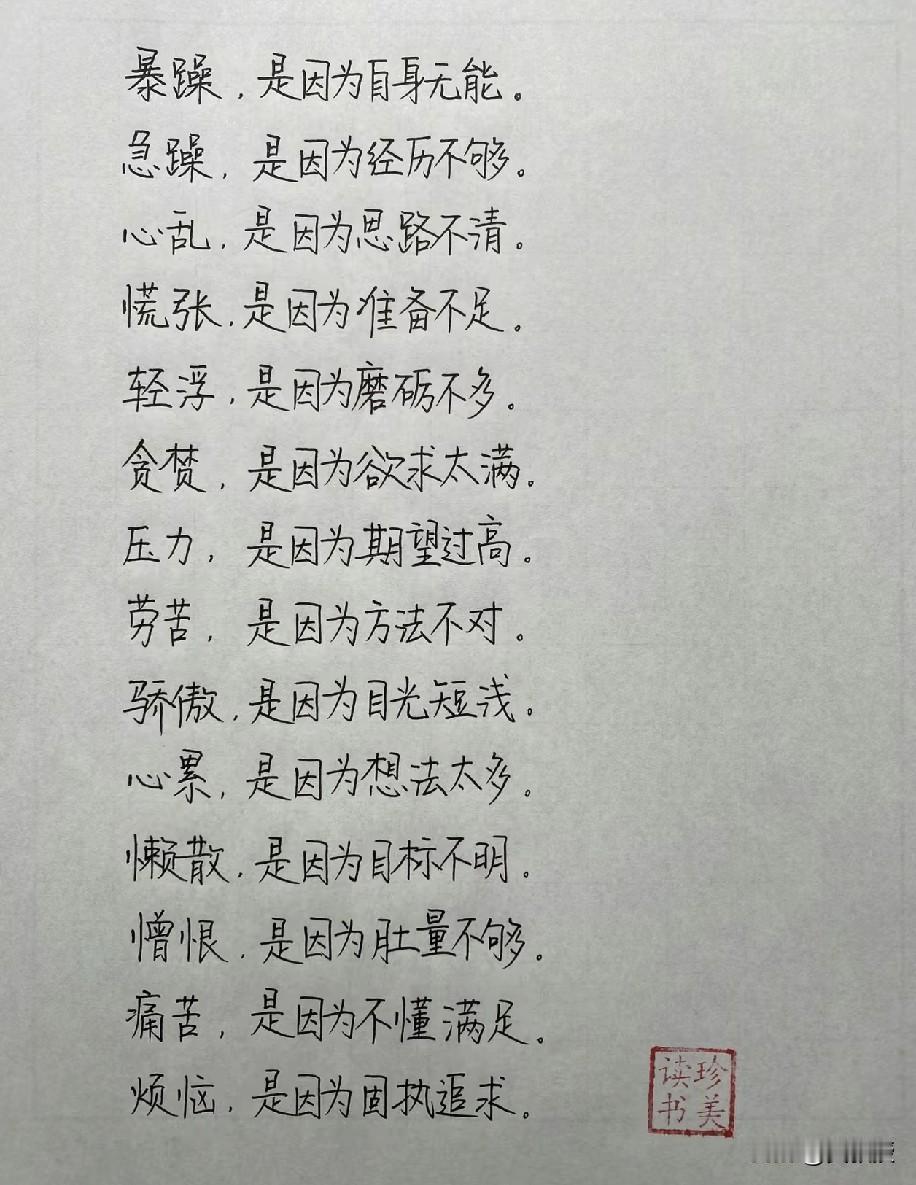 暴躁，是因为自身无能。
急躁，是因为经历不够。
心乱，是因为思路不清。
慌张，是因为准备不足。
轻浮，是因为磨砺不多。
贪焚，是因为欲求太满。
压力，是因为期望过高。
劳苦，是因为方法不对。
骄傲，是因为目光短浅。
心累，是因为想法太多。
懒散，是因为目标不明。
憎恨，是因为肚量不够。
痛苦，是因为不懂满足。
烦恼，是因为固执追求。
珍美
读书